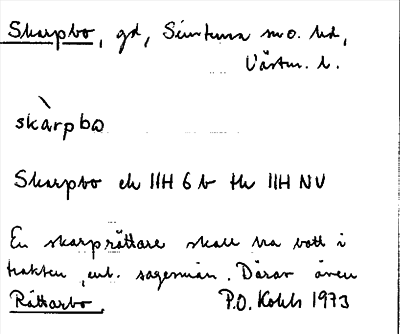 Skarpbo, gd, Simtuna sn o. hd,
Västm. l.
skàrpbω
Skarpbo ek 11H 6 b tk 11H NV
En skarprättare skall ha bott i
trakten, enl. sägesmän. Därav även
Rättarbo. P.O. Kohls 1973